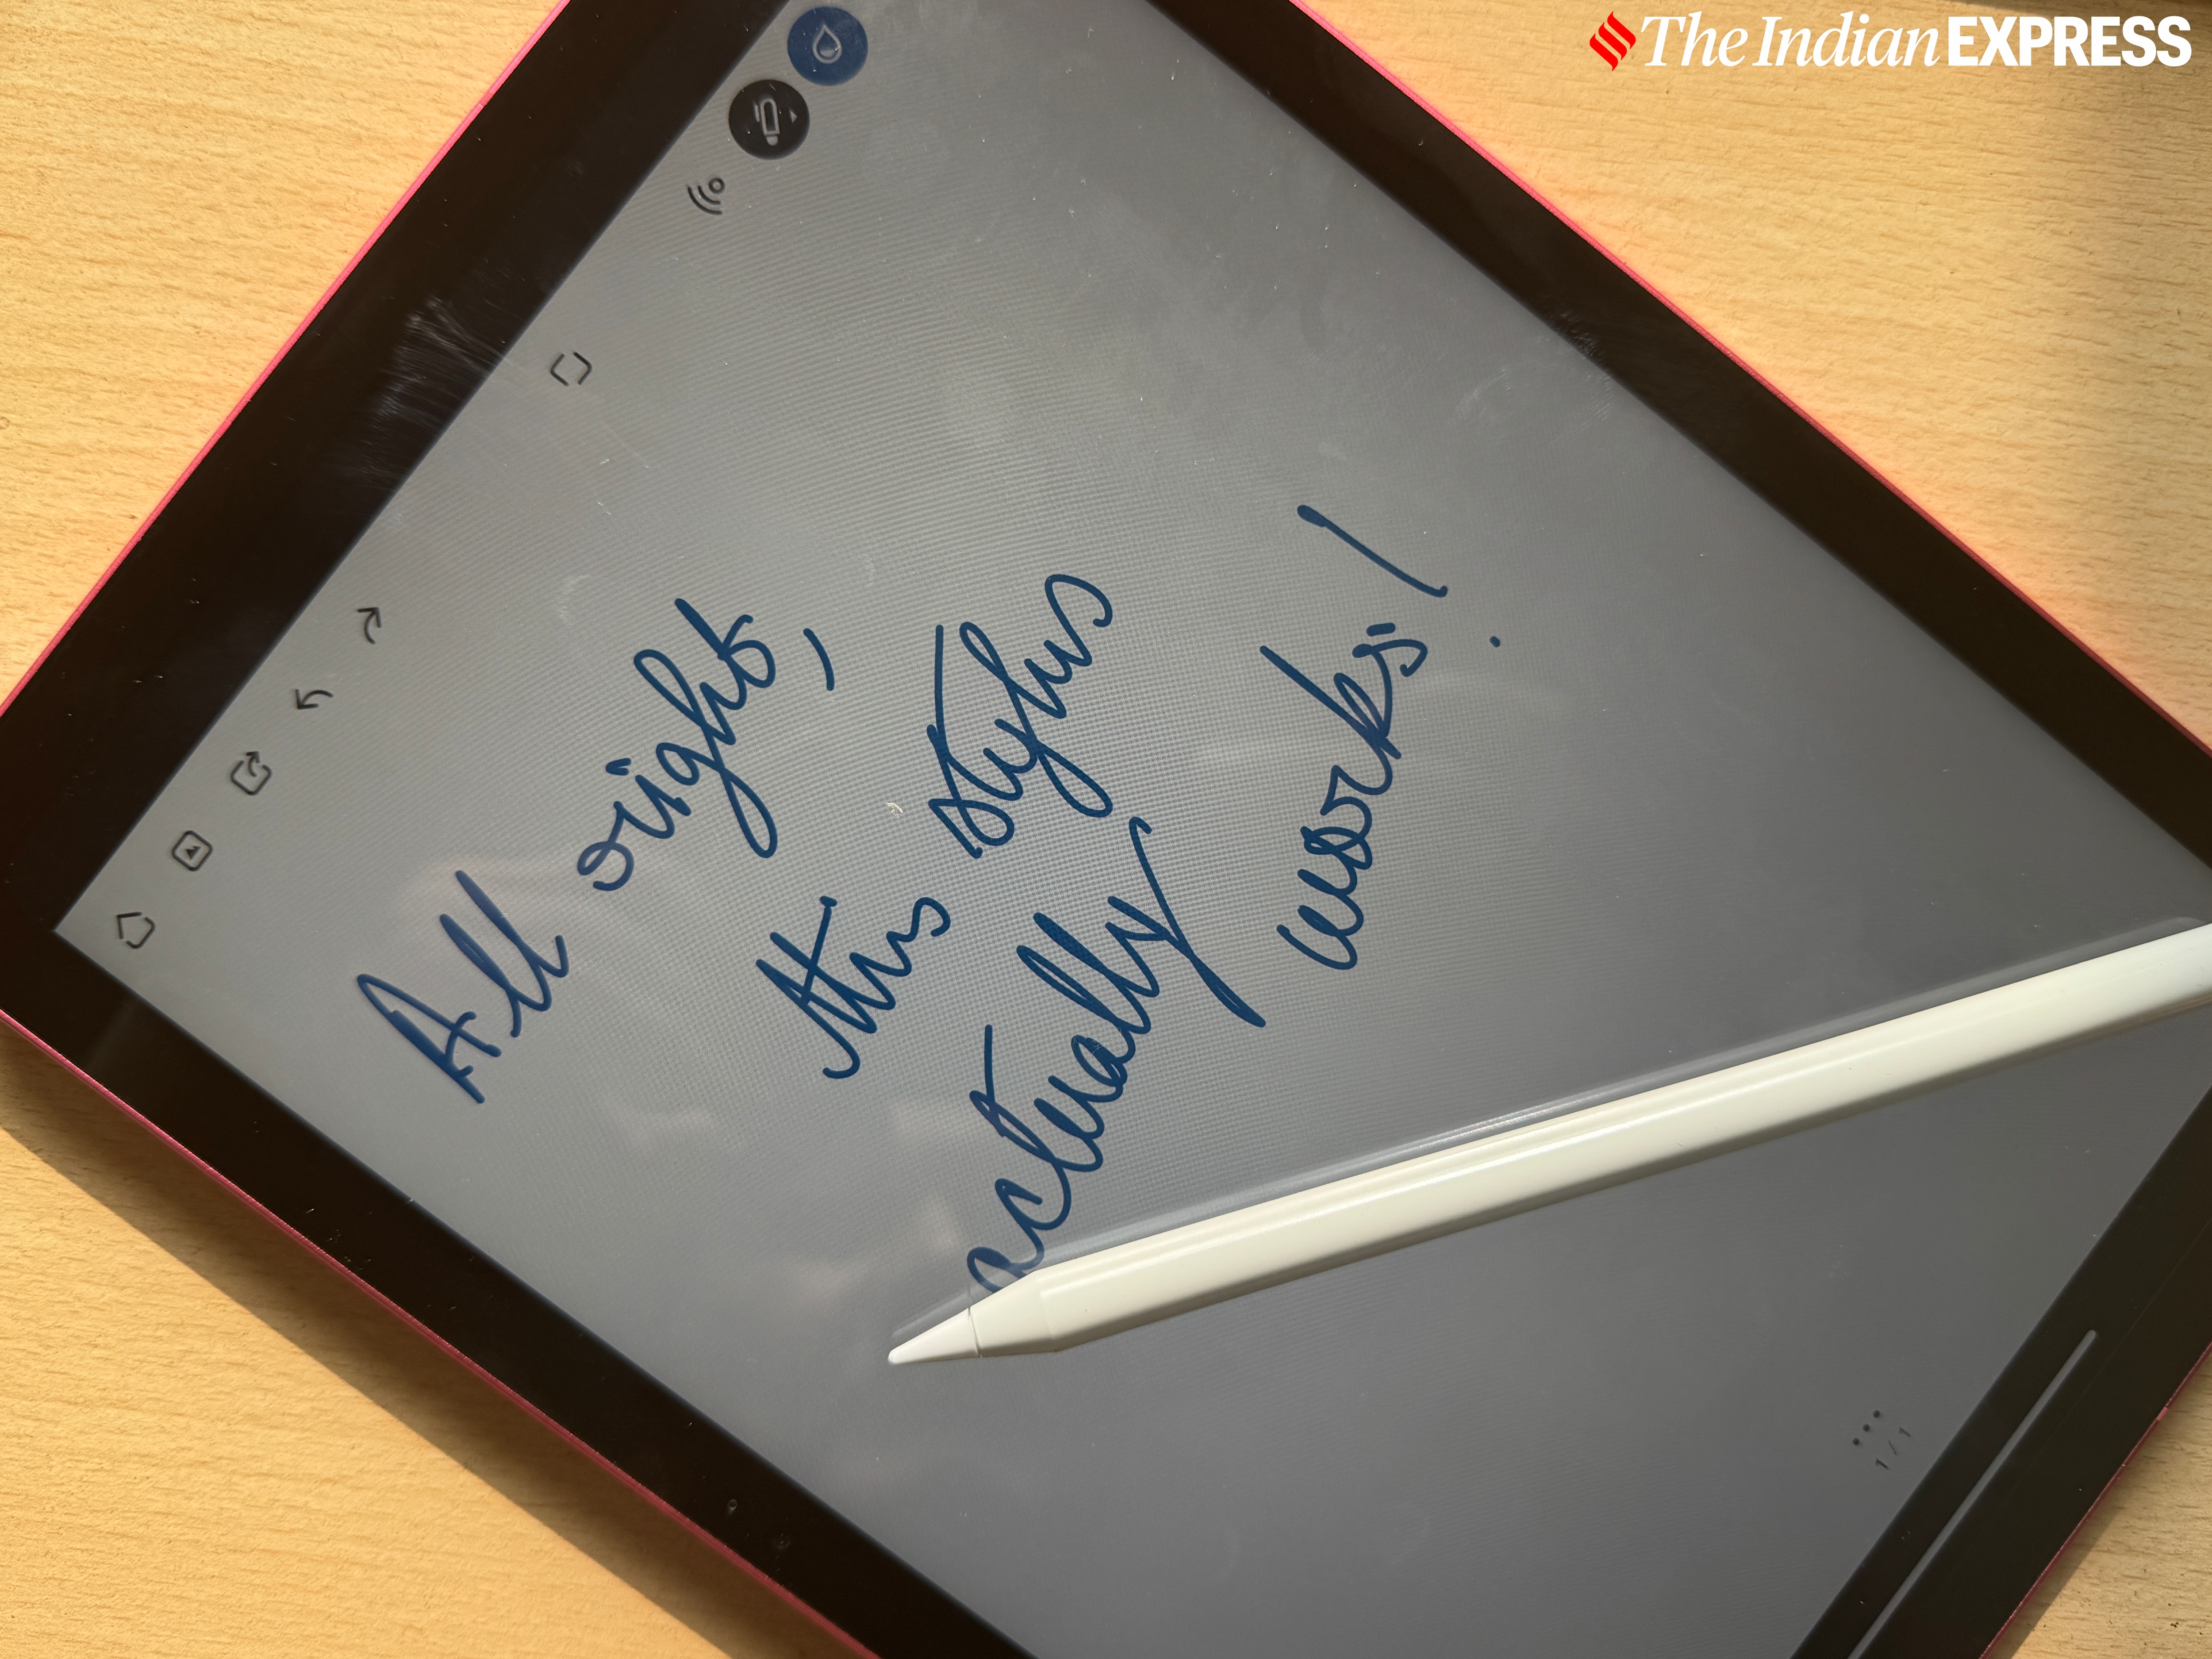 The Indian EXPRESS
All right,
this stylus
actually
works!
1 / 1